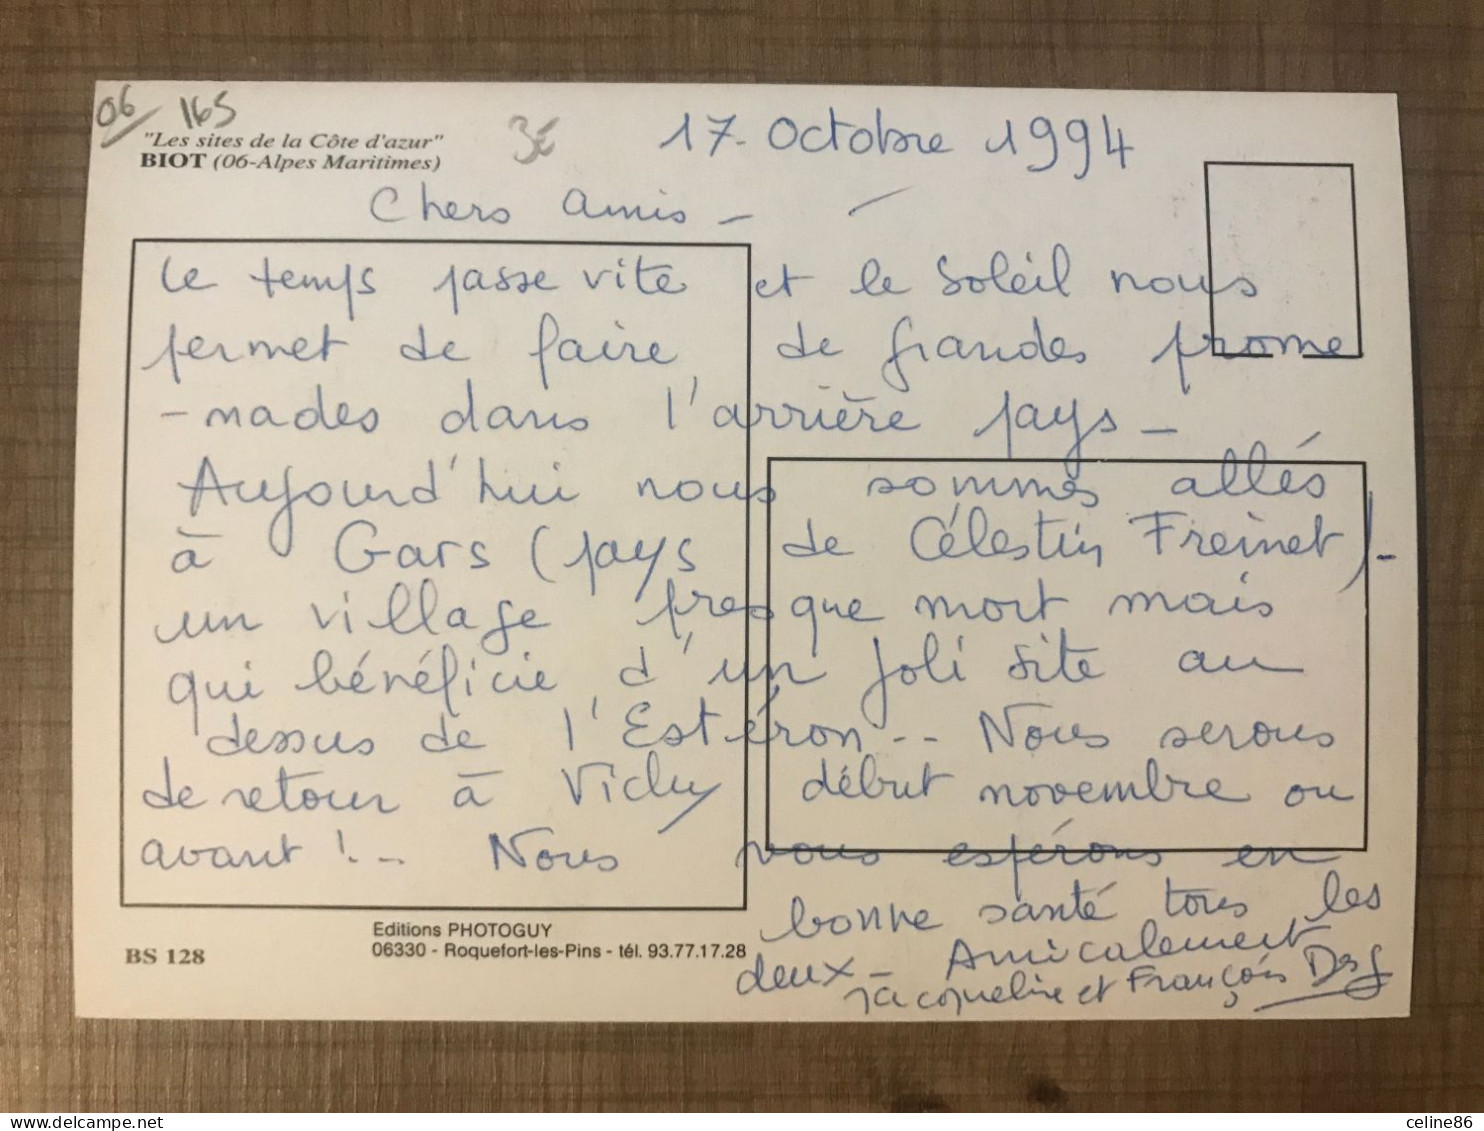 06/ 165
"Les sites de la Côte d'azur"
BIOT (06-Alpes Maritimes)
3€
17. Octobre 1994
Chers amis -
Le temps passe vite et le soleil nous
permet de faire de grandes prome
-nades dans l'arrière pays -
Aujourd'hui nous sommes allés
à Gars (pays de Célestin Freinet) -
un village presque mort mais
qui bénéficie d'un joli site au
dessus de l'Estéron.. Nous serons
de retour à Vichy début novembre ou
avant !.. Nous vous espérons en
bonne santé tous les
deux - Amicalement
Jacqueline et François
Editions PHOTOGUY
06330 - Roquefort-les-Pins - tél. 93.77.17.28
BS 128
delcampe.net
celine86